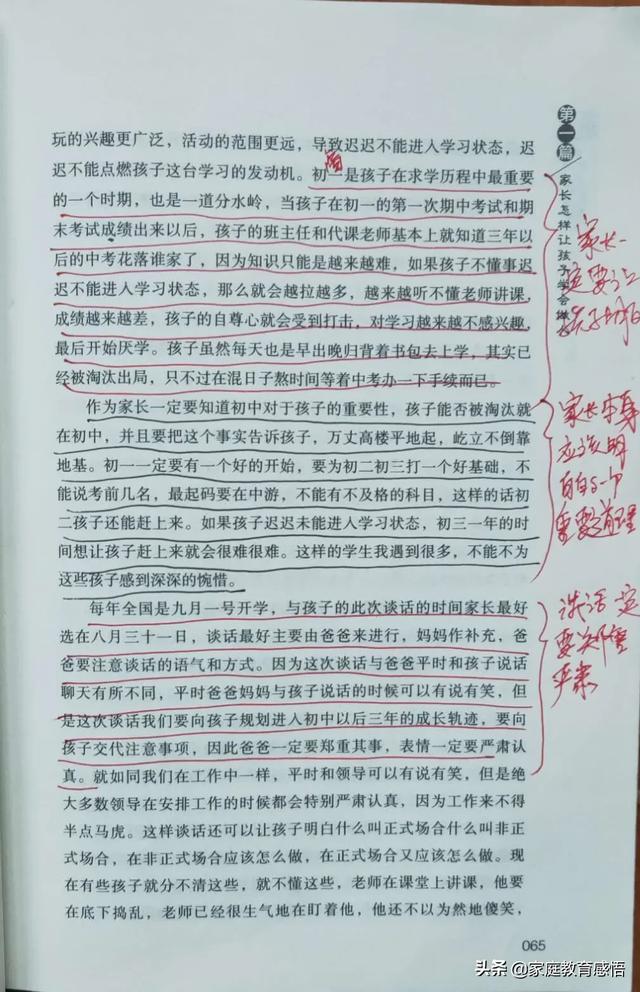 玩的兴趣更广泛，活动的范围更远，导致迟迟不能进入学习状态，迟
迟不能点燃孩子这台学习的发动机。初一是孩子在求学历程中最重要
的一个时期，也是一道分水岭，当孩子在初一的第一次期中考试和期
末考试成绩出来以后，孩子的班主任和代课老师基本上就知道三年以
后的中考花落谁家了，因为知识只能是越来越难，如果孩子不懂事迟
迟不能进入学习状态，那么就会越拉越多，越来越听不懂老师讲课，
成绩越来越差，孩子的自尊心就会受到打击，对学习越来越不感兴趣，
最后开始厌学。孩子虽然每天也是早出晚归背着书包去上学，其实已
经被淘汰出局，只不过在混日子熬时间等着中考办一下手续而已。
作为家长一定要知道初中对于孩子的重要性，孩子能否被淘汰就
在初中，并且要把这个事实告诉孩子，万丈高楼平地起，屹立不倒靠
地基。初一一定要有一个好的开始，要为初二初三打一个好基础，不
能说考前几名，最起码要在中游，不能有不及格的科目，这样的话初
二孩子还能赶上来。如果孩子迟迟未能进入学习状态，初三一年的时
间想让孩子赶上来就会很难很难。这样的学生我遇到很多，不能不为
这些孩子感到深深的惋惜。
每年全国是九月一号开学，与孩子的此次谈话的时间家长最好
选在八月三十一日，谈话最好主要由爸爸来进行，妈妈作补充，爸
爸要注意谈话的语气和方式。因为这次谈话与爸爸平时和孩子说话
聊天有所不同，平时爸爸妈妈与孩子说话的时候可以有说有笑，但
是这次谈话我们要向孩子规划进入初中以后三年的成长轨迹，要向
孩子交代注意事项，因此爸爸一定要郑重其事，表情一定要严肃认
真。就如同我们在工作中一样，平时和领导可以有说有笑，但是绝
大多数领导在安排工作的时候都会特别严肃认真，因为工作来不得
半点马虎。这样谈话还可以让孩子明白什么叫正式场合什么叫非正
式场合，在非正式场合应该怎么做，在正式场合又应该怎么做。现
在有些孩子就分不清这些，就不懂这些，老师在课堂上讲课，他要
在底下捣乱，老师已经很生气地在盯着他，他还不以为然地傻笑，
065
第一篇
家长怎样让孩子学会做
家长一
定要让
孩子明白
家长本身
应该明
白这个
重要道理
谈话一定
要郑重
严肃
头条 @家庭教育感悟